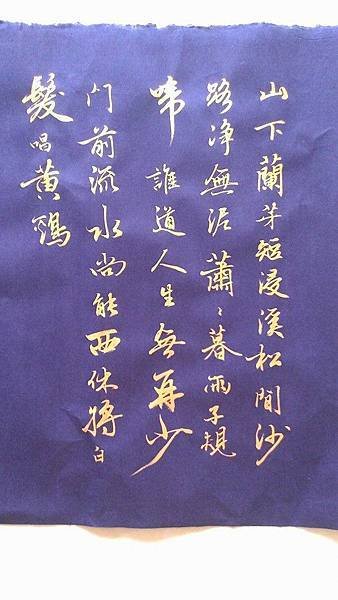 山下蘭芽短浸溪松間沙
路浄無泥蕭〻暮雨子規
啼誰道人生無再少
门前流水尚能西休將白
髮唱黄鷄